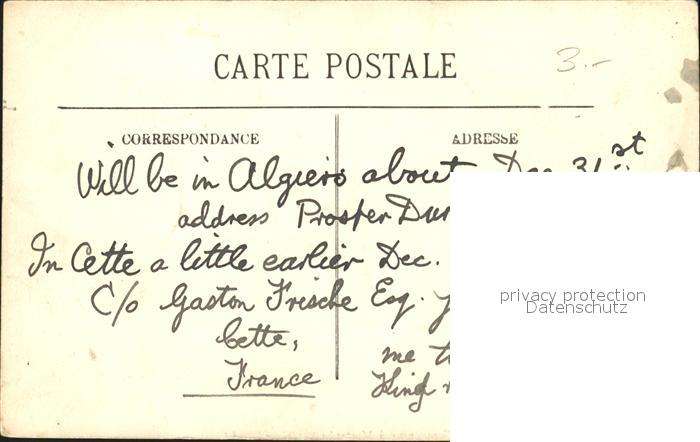 CARTE POSTALE
3.-
CORRESPONDANCE
ADRESSE
Will be in Algiers about Dec 31st
address Prosper Dur
In Cette a little earlier Dec.
C/o Gaston Frische Esq.
Cette,
France
me
privacy protection
Datenschutz